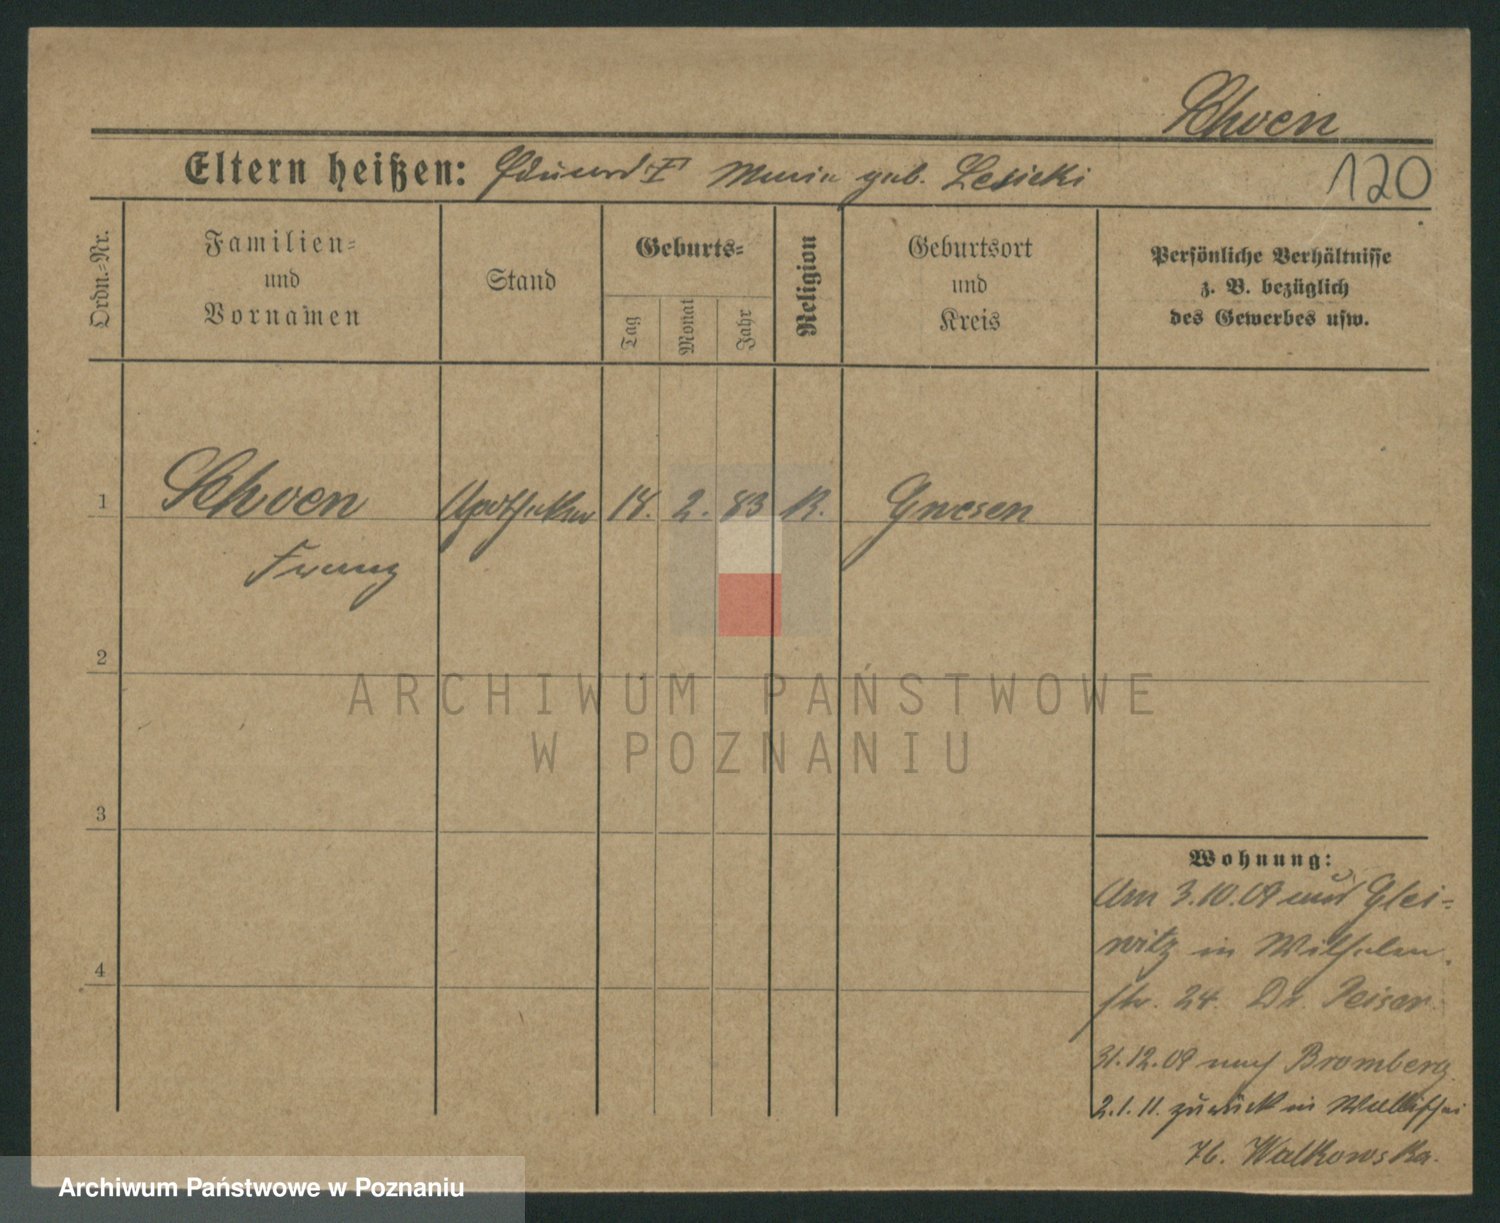 Schoen
Eltern heißen: Eduard † Maria geb. Lesicki
120
Ordn.-Nr.
Familien-
und
Vornamen
Stand
Geburts-
Tag
Monat
Jahr
Religion
Geburtsort
und
Kreis
Persönliche Verhältnisse
z. B. bezüglich
des Gewerbes usw.
1
Schoen
Apotheker
14. 2. 83
K.
Gnesen
Franz
2
ARCHIWUM PAŃSTWOWE
W POZNANIU
3
4
Wohnung:
Am 3.10.09 aus Glei-
witz in Wilhelm-
str. 24. Dr. Peiser.
31.12.09 nach Bromberg
2.1.11. zurück in Wallischei
76. Walkowska.
Archiwum Państwowe w Poznaniu